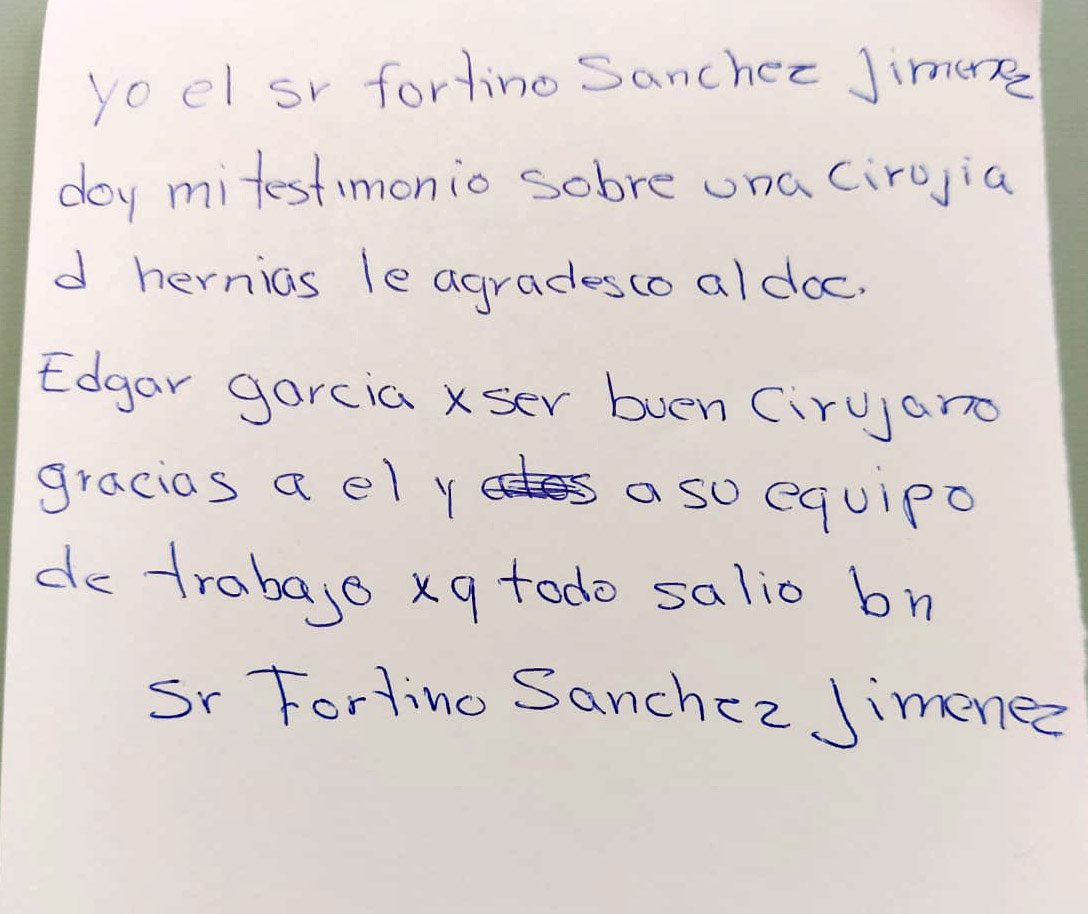 yo el sr fortino Sanchez Jimenez
doy mi testimonio sobre una cirujia
d hernias le agradesco al doc.
Edgar garcia x ser buen Cirujano
gracias a el y a su equipo
de trabajo xq todo salio bn
Sr Fortino Sanchez Jimenez